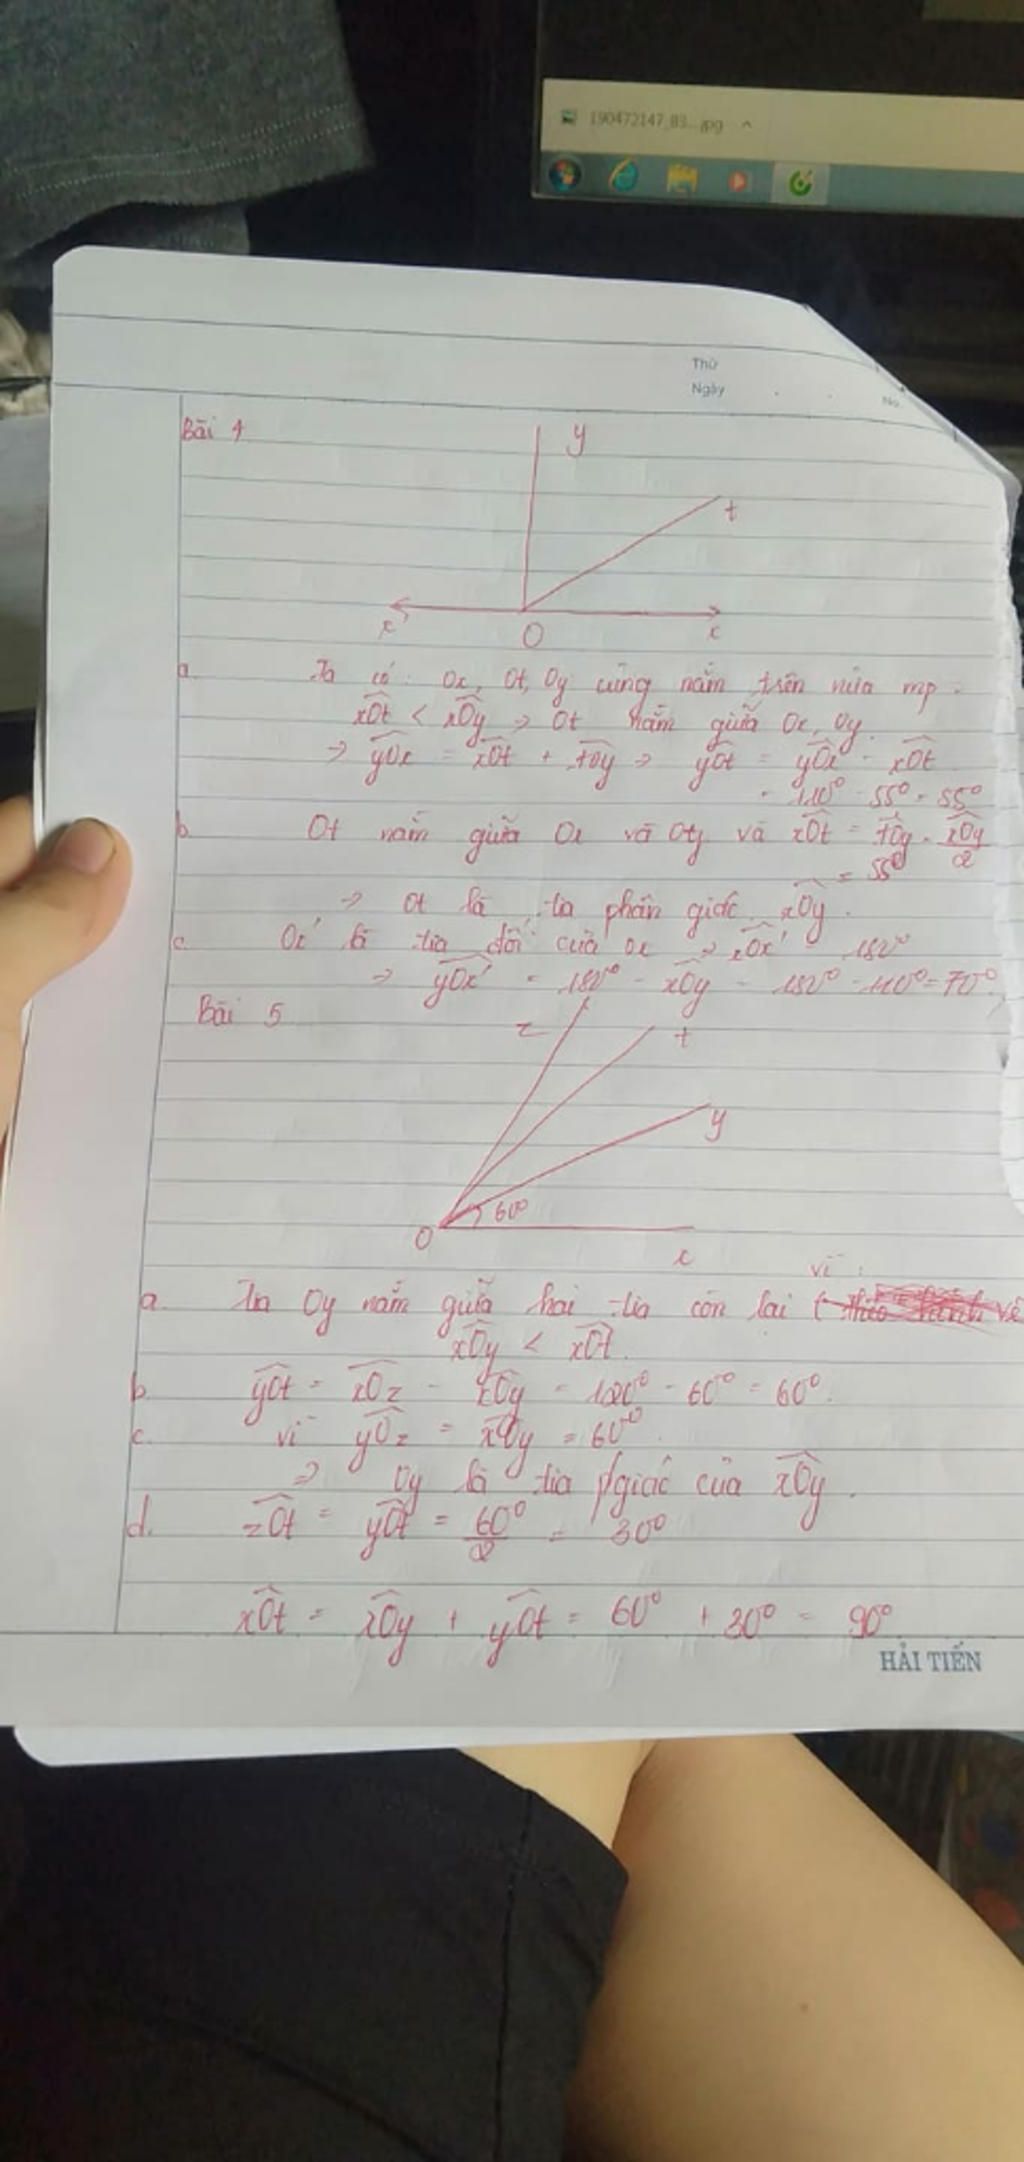 190472147_83...jpg
Thứ
Ngày
No.
Bài 4
y
t
x' O x
a. Ta có: Ox, Ot, Oy cùng nằm trên nửa mp.
xOt < xOy => Ot nằm giữa Ox, Oy.
=> yOx = xOt + tOy => yOt = yOx - xOt
= 110° - 55° = 55°
b. Ot nằm giữa Ox và Oty và xOt = tOy = xOy/2
= 55°
=> Ot là tia phân giác xOy.
c. Ox' là tia đối của Ox => xOx' = 180°
=> yOx' = 180° - xOy = 180° - 110° = 70°
Bài 5
z t
y
60°
O x
vì:
a. Tia Oy nằm giữa hai tia còn lại ( theo hình vẽ
xOy < xOt.
b. yOt = xOz - xOy = 120° - 60° = 60°.
c. vì yOz = xOy = 60°.
=> Oy là tia p/giác của xOy.
d. zOt = yOt = 60°/2 = 30°
xOt = xOy + yOt = 60° + 30° = 90°
HẢI TIẾN